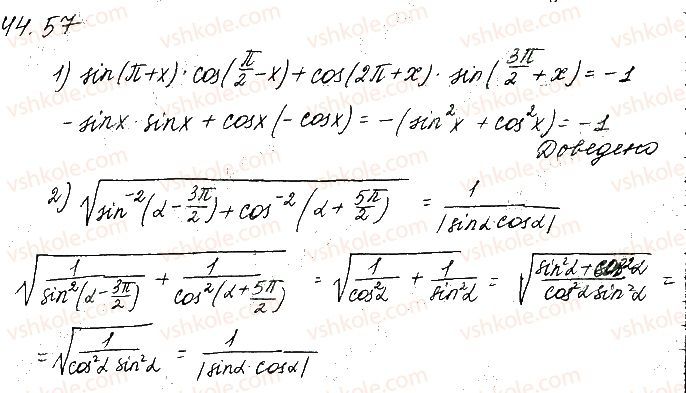 44.57
1) sin(π+x)·cos(π/2−x)+cos(2π+x)·sin(3π/2+x)=−1
−sinx·sinx+cosx(−cosx)=−(sin²x+cos²x)=−1
Доведено
2) √(sin⁻²(α−3π/2)+cos⁻²(α+5π/2)) = 1/|sinα·cosα|
√(1/sin²(α−3π/2) + 1/cos²(α+5π/2)) = √(1/cos²α + 1/sin²α) = √((sin²α+cos²α)/(cos²α sin²α)) =
= √(1/(cos²α sin²α)) = 1/|sinα·cosα|